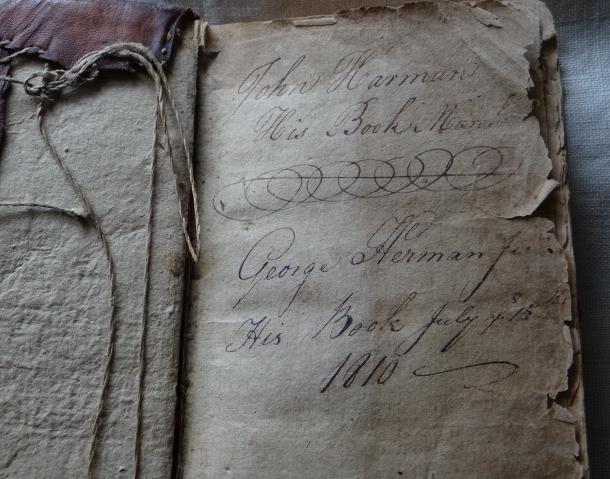 John Harman
His Book
George Herman
His Book July ye 15
1810